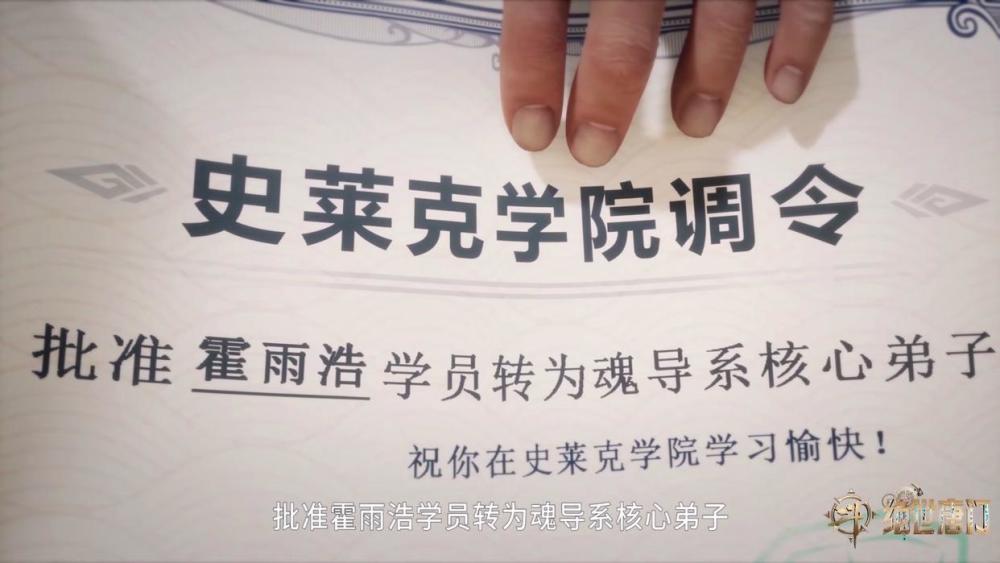 史莱克学院调令
批准 霍雨浩 学员转为魂导系核心弟子
祝你在史莱克学院学习愉快!
批准霍雨浩学员转为魂导系核心弟子
绝世唐门